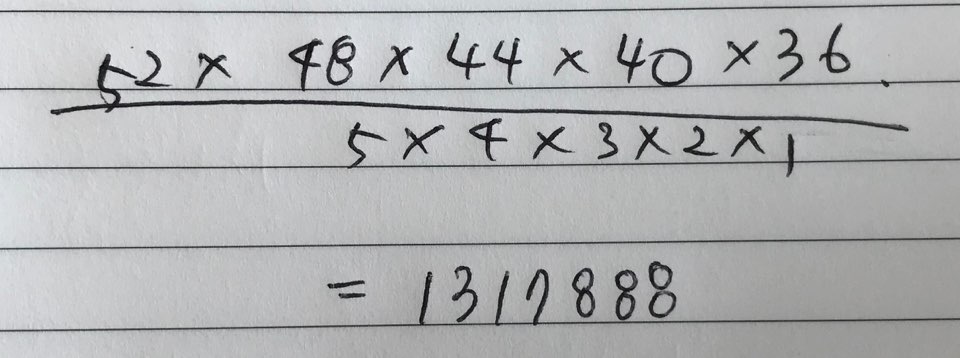 52 × 48 × 44 × 40 × 36.
5 × 4 × 3 × 2 × 1
= 1317888